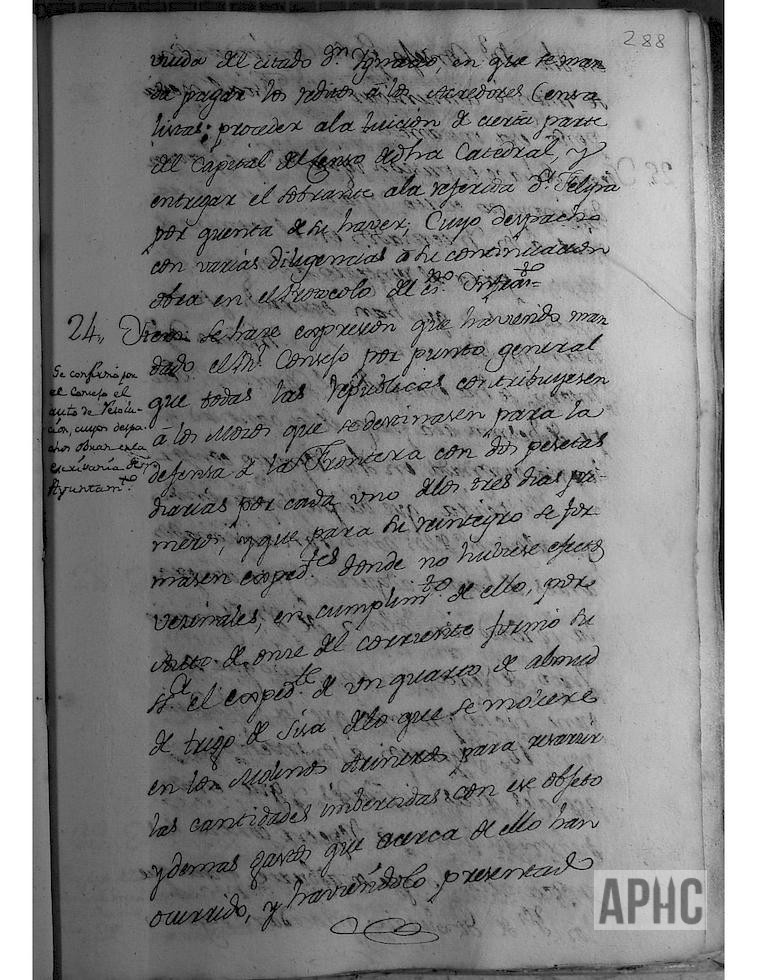 288
viuda del citado Dn. Ignacio, en que se man
da pagar los reditos à los Acredores Censa
listas; proceder ala luicion de cierta parte
del Capital del Censo de dha Catedral, y
entregar el sobrante ala referida Da. Felipa
por quenta de su haver; Cuyo despacho
con varias diligencias a su continuacion
obra en el Protocolo del
24,, se haze expresion que haviendo man
dado el Rl. Consejo por punto general
que todas las republicas contribuyesen
à los Mozos que se destinasen para la
defensa de la Frontera con dos pesetas
diarias por cada uno delos tres dias pri-
meros, y que para su reintegro se for
masen expedtes. donde no hubiese efectos
vezinales, en cumplimto. de ello, por
Auto de onze del corriente formó su
Sd. el expedte. de un quarto de almud
de trigo de sisa delo que se moliere
en los Molinos Arineros para resarzir
las cantidades imbertidas con ese objeto
y demas gastos que acerca de ello han
ocurrido, y haviendolo presentado
Se confirmó por
el Consejo el
auto de resolu-
cion, cuyos despa
chos obran en la
Escrivania de
Ayuntamto.
APHC